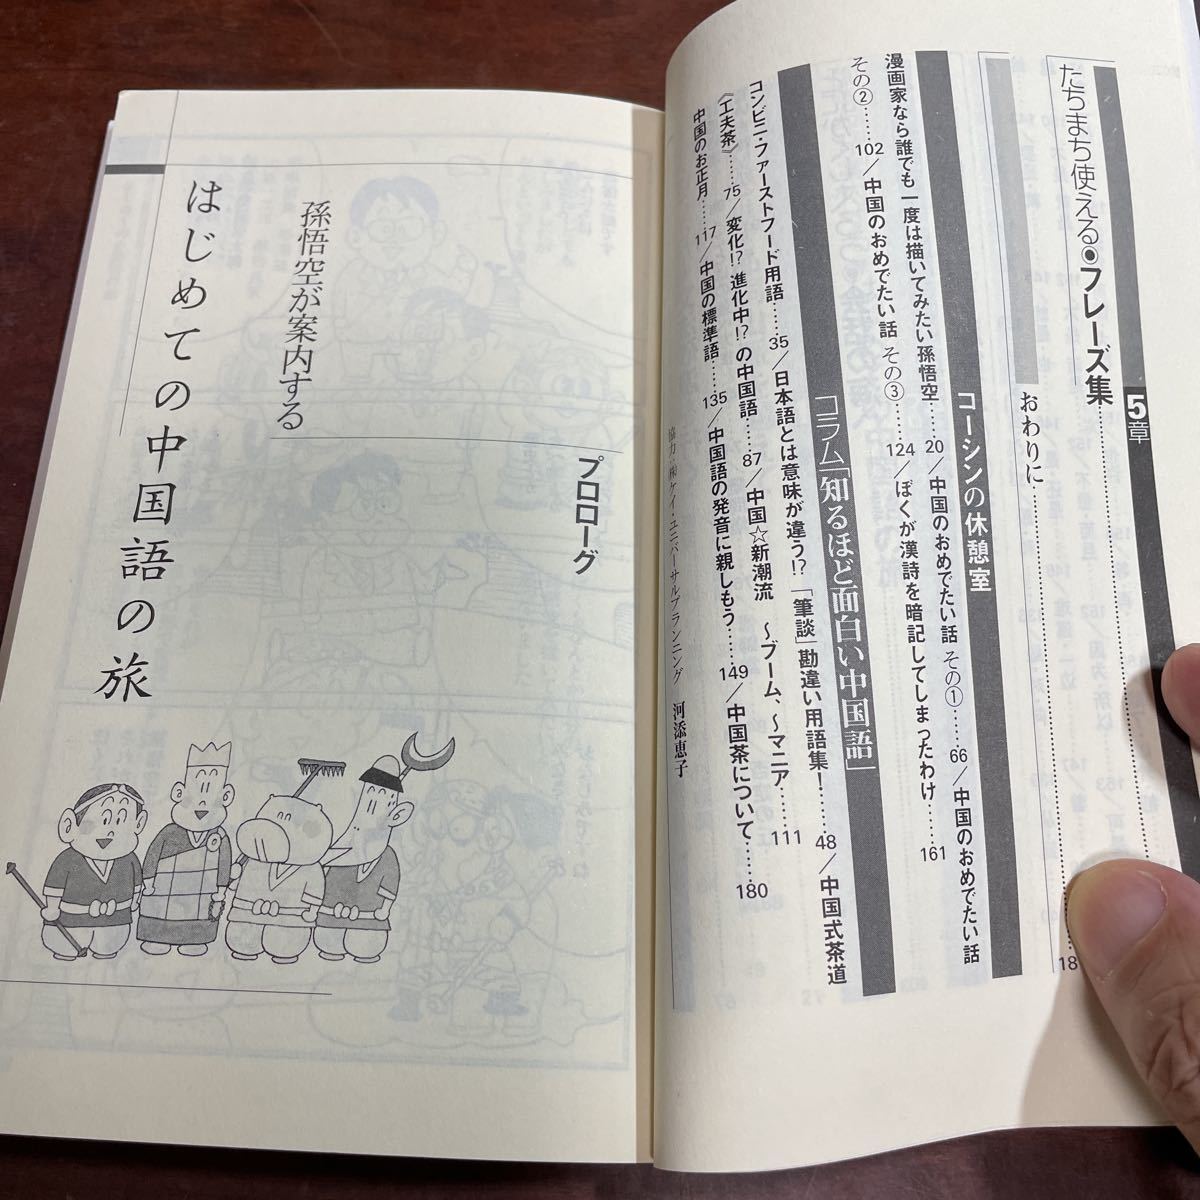 5章
たちまち使える◉フレーズ集
おわりに
18
コーシンの休憩室
漫画家なら誰でも一度は描いてみたい孫悟空……20／中国のおめでたい話 その①……66／中国のおめでたい話
その②……102／中国のおめでたい話 その③……124／ぼくが漢詩を暗記してしまったわけ……161
コラム「知るほど面白い中国語」
コンビニ・ファーストフード用語……35／日本語とは意味が違う!?「筆談」勘違い用語集！……48／中国式茶道
《工夫茶》……75／変化!? 進化中!? の中国語……87／中国☆新潮流 〜ブーム、〜マニア……111
中国のお正月……117／中国の標準語……135／中国語の発音に親しもう……149／中国茶について……180
協力・㈱ケイ・ユニバーサルプランニング 河添恵子
プロローグ
孫悟空が案内する
はじめての中国語の旅